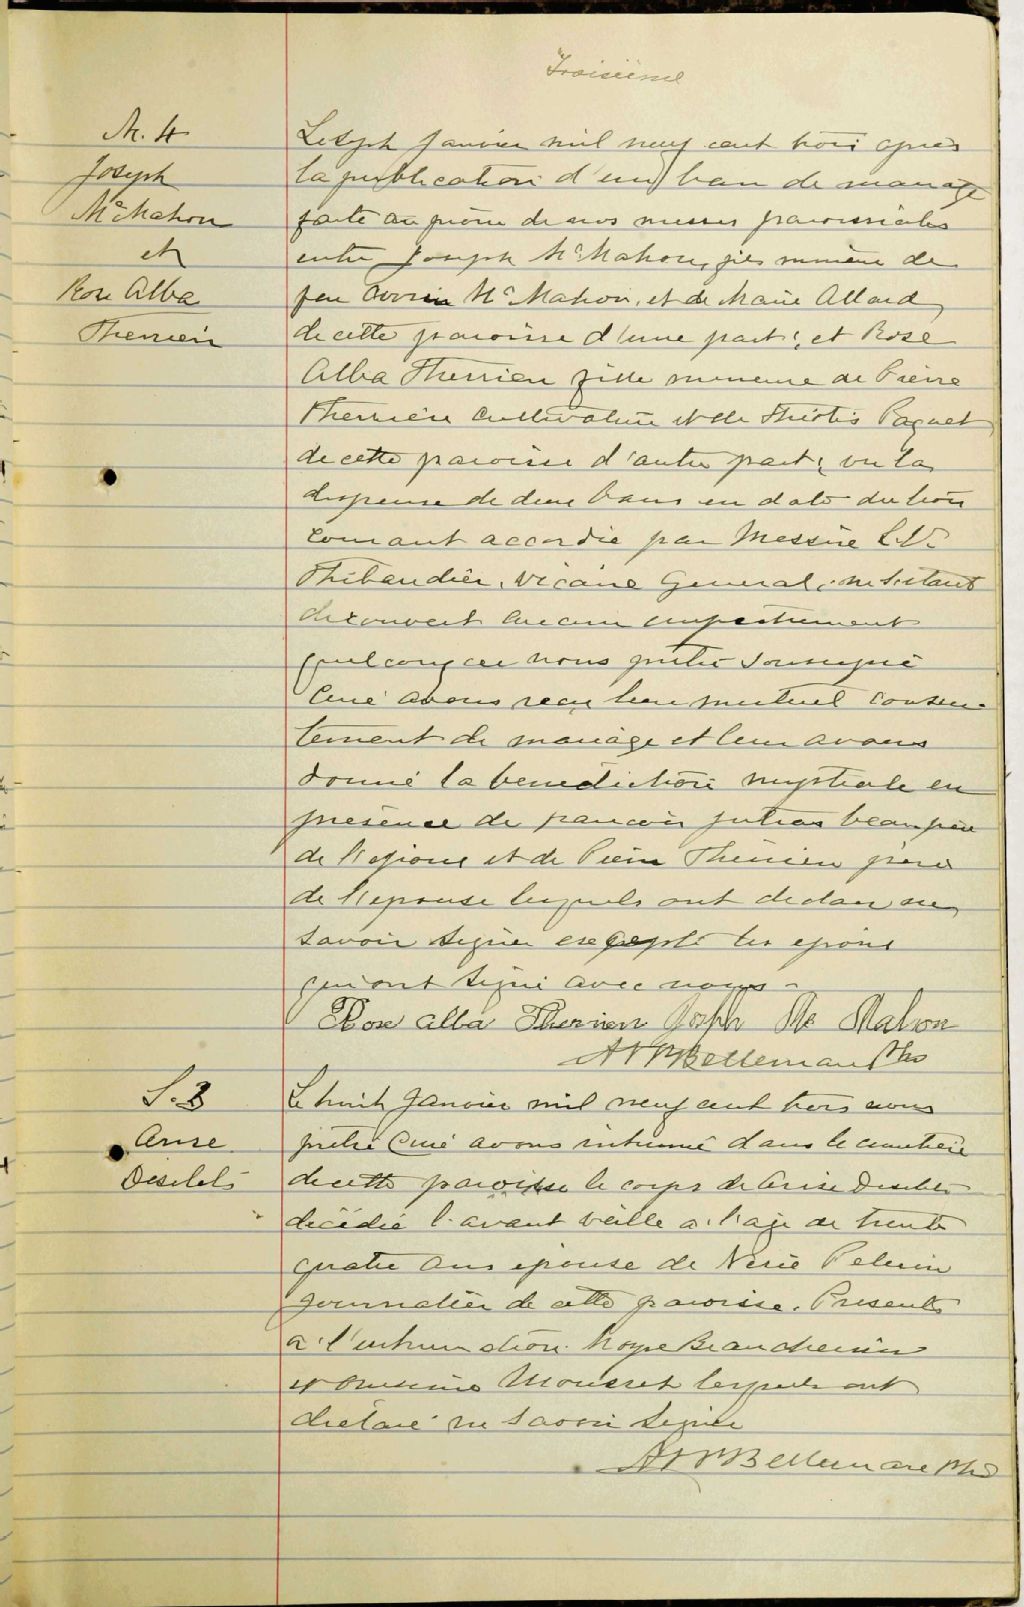 Troisième
M. 4
Joseph
McMahon
et
Rose Alba
Therrien
Le sept Janvier mil neuf cent trois après
la publication d'un ban de mariage
faite au prône de nos messes paroissiales
entre Joseph McMahon, fils mineur de
feu McMahon, et de Marie Allard
de cette paroisse d'une part, et Rose
Alba Therrien fille mineure de Pierre
Therrien cultivateur et de Paquet
de cette paroisse d'autre part; vu la
dispense de deux bans en date du trois
courant accordée par Messire
Thibaudier, Vicaire Général; ne s'étant
découvert aucun empêchement
quelconque nous prêtre soussigné
Curé avons reçu leur mutuel consen-
tement de mariage et leur avons
donné la bénédiction nuptiale en
présence de Jutras beau père
de l'époux et de Pierre Therrien père
de l'épouse lesquels ont déclaré ne
savoir signer excepté les époux
qui ont signé avec nous -
Rose alba Therrien Joseph Mc Mahon
Bellemare Ptre
S. 3
Desilets
Le huit Janvier mil neuf cent trois nous
prêtre Curé avons inhumé dans le cimetière
de cette paroisse le corps de Desilets
décédée l'avant veille à l'age de trente
quatre ans épouse de Pellerin
journalier de cette paroisse. Présents
à l'inhumation Beauchemin
et lesquels ont
déclaré ne savoir signer
Bellemare Ptre